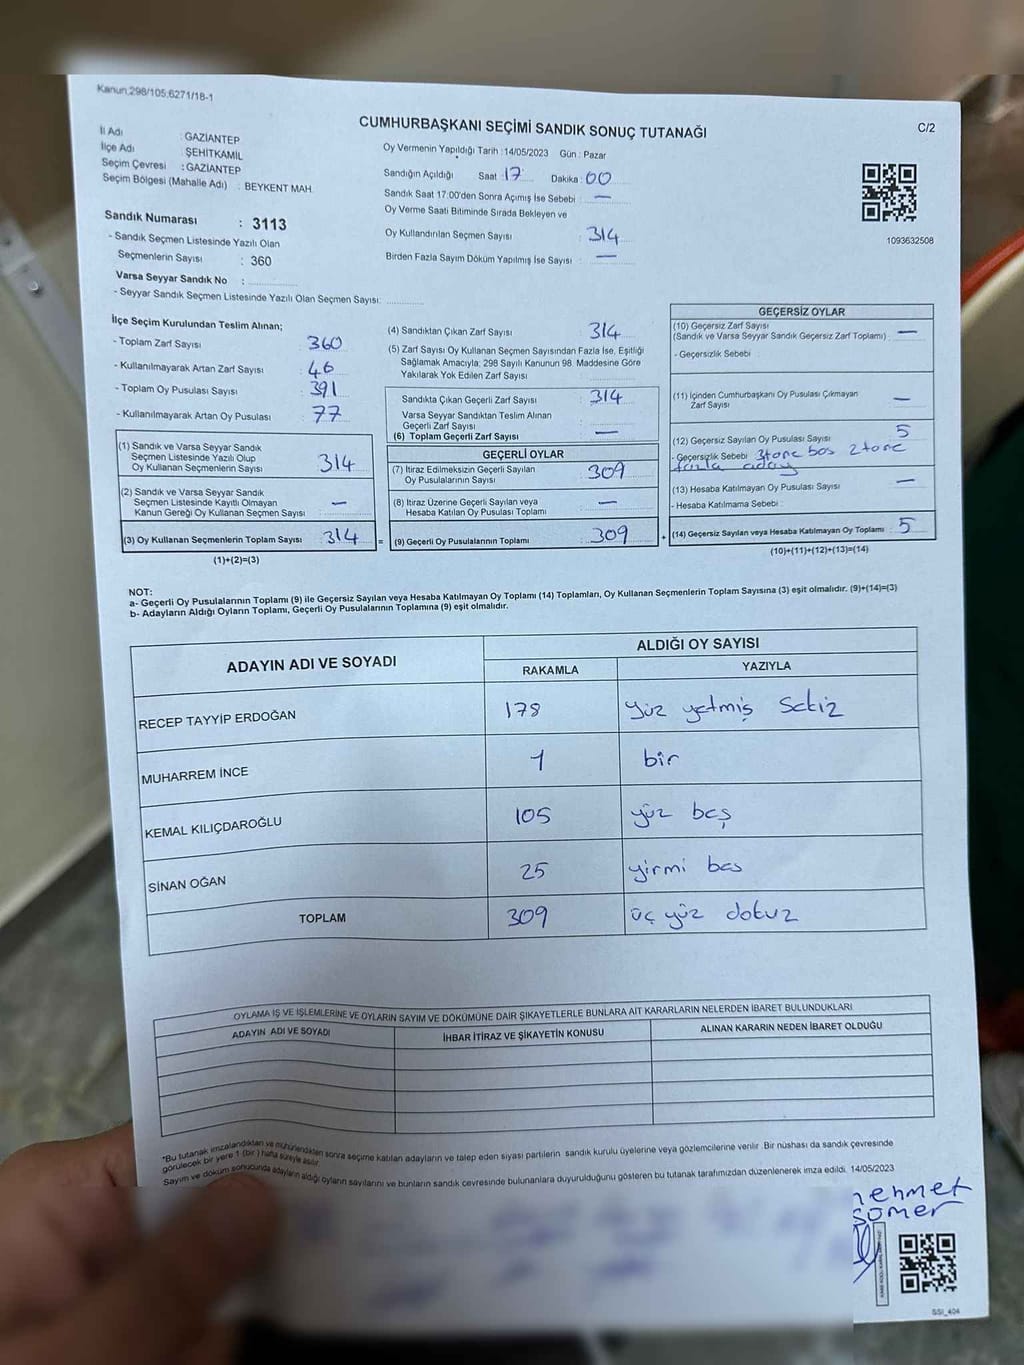 Kanun;298/105;6271/18-1
C/2
CUMHURBAŞKANI SEÇİMİ SANDIK SONUÇ TUTANAĞI
İl Adı : GAZİANTEP
İlçe Adı : ŞEHİTKAMİL
Seçim Çevresi : GAZİANTEP
Seçim Bölgesi (Mahalle Adı) : BEYKENT MAH.
Sandık Numarası : 3113
- Sandık Seçmen Listesinde Yazılı Olan
Seçmenlerin Sayısı : 360
Varsa Seyyar Sandık No :
- Seyyar Sandık Seçmen Listesinde Yazılı Olan Seçmen Sayısı:
Oy Vermenin Yapıldığı Tarih : 14/05/2023 Gün : Pazar
Sandığın Açıldığı Saat : 17 Dakika : 00
Sandık Saat 17:00'den Sonra Açımış İse Sebebi : —
Oy Verme Saati Bitiminde Sırada Bekleyen ve
Oy Kullandırılan Seçmen Sayısı : 314
Birden Fazla Sayım Döküm Yapılmış İse Sayısı : —
1093632508
İlçe Seçim Kurulundan Teslim Alınan;
- Toplam Zarf Sayısı : 360
- Kullanılmayarak Artan Zarf Sayısı : 46
- Toplam Oy Pusulası Sayısı : 391
- Kullanılmayarak Artan Oy Pusulası : 77
(1) Sandık ve Varsa Seyyar Sandık
Seçmen Listesinde Yazılı Olup
Oy Kullanan Seçmenlerin Sayısı : 314
(2) Sandık ve Varsa Seyyar Sandık
Seçmen Listesinde Kayıtlı Olmayan
Kanun Gereği Oy Kullanan Seçmen Sayısı : —
(3) Oy Kullanan Seçmenlerin Toplam Sayısı : 314 =
(1)+(2)=(3)
(4) Sandıktan Çıkan Zarf Sayısı : 314
(5) Zarf Sayısı Oy Kullanan Seçmen Sayısından Fazla İse, Eşitliği
Sağlamak Amacıyla; 298 Sayılı Kanunun 98. Maddesine Göre
Yakılarak Yok Edilen Zarf Sayısı :
Sandıkta Çıkan Geçerli Zarf Sayısı : 314
Varsa Seyyar Sandıktan Teslim Alınan
Geçerli Zarf Sayısı :
(6) Toplam Geçerli Zarf Sayısı : —
GEÇERLİ OYLAR
(7) İtiraz Edilmeksizin Geçerli Sayılan
Oy Pusulalarının Sayısı : 309
(8) İtiraz Üzerine Geçerli Sayılan veya
Hesaba Katılan Oy Pusulası Toplamı : —
(9) Geçerli Oy Pusulalarının Toplamı : 309 +
GEÇERSİZ OYLAR
(10) Geçersiz Zarf Sayısı
(Sandık ve Varsa Seyyar Sandık Geçersiz Zarf Toplamı) : —
- Geçersizlik Sebebi :
(11) İçinden Cumhurbaşkanı Oy Pusulası Çıkmayan
Zarf Sayısı : —
(12) Geçersiz Sayılan Oy Pusulası Sayısı : 5
- Geçersizlik Sebebi : 3tane boş 2tane
fazla aday
(13) Hesaba Katılmayan Oy Pusulası Sayısı : —
- Hesaba Katılmama Sebebi :
(14) Geçersiz Sayılan veya Hesaba Katılmayan Oy Toplamı : 5
(10)+(11)+(12)+(13)=(14)
NOT:
a- Geçerli Oy Pusulalarının Toplamı (9) ile Geçersiz Sayılan veya Hesaba Katılmayan Oy Toplamı (14) Toplamları, Oy Kullanan Seçmenlerin Toplam Sayısına (3) eşit olmalıdır. (9)+(14)=(3)
b- Adayların Aldığı Oyların Toplamı, Geçerli Oy Pusulalarının Toplamına (9) eşit olmalıdır.
ADAYIN ADI VE SOYADI
ALDIĞI OY SAYISI
RAKAMLA YAZIYLA
RECEP TAYYİP ERDOĞAN 178 yüz yetmiş sekiz
MUHARREM İNCE 1 bir
KEMAL KILIÇDAROĞLU 105 yüz beş
SİNAN OĞAN 25 yirmi bes
TOPLAM 309 üç yüz dokuz
OYLAMA İŞ VE İŞLEMLERİNE VE OYLARIN SAYIM VE DÖKÜMÜNE DAİR ŞİKAYETLERLE BUNLARA AİT KARARLARIN NELERDEN İBARET BULUNDUKLARI
ADAYIN ADI VE SOYADI İHBAR İTİRAZ VE ŞİKAYETİN KONUSU ALINAN KARARIN NEDEN İBARET OLDUĞU
*Bu tutanak imzalandıktan ve mühürlendikten sonra seçime katılan adayların ve talep eden siyasi partilerin sandık kurulu üyelerine veya gözlemcilerine verilir. Bir nüshası da sandık çevresinde
görülecek bir yere 1 (bir) hafta süreyle asılır.
Sayım ve döküm sonucunda adayların aldığı oyların sayılarını ve bunların sandık çevresinde bulunanlara duyurulduğunu gösteren bu tutanak tarafımızdan düzenlenerek imza edildi. 14/05/2023
mehmet
somer
SSI_404